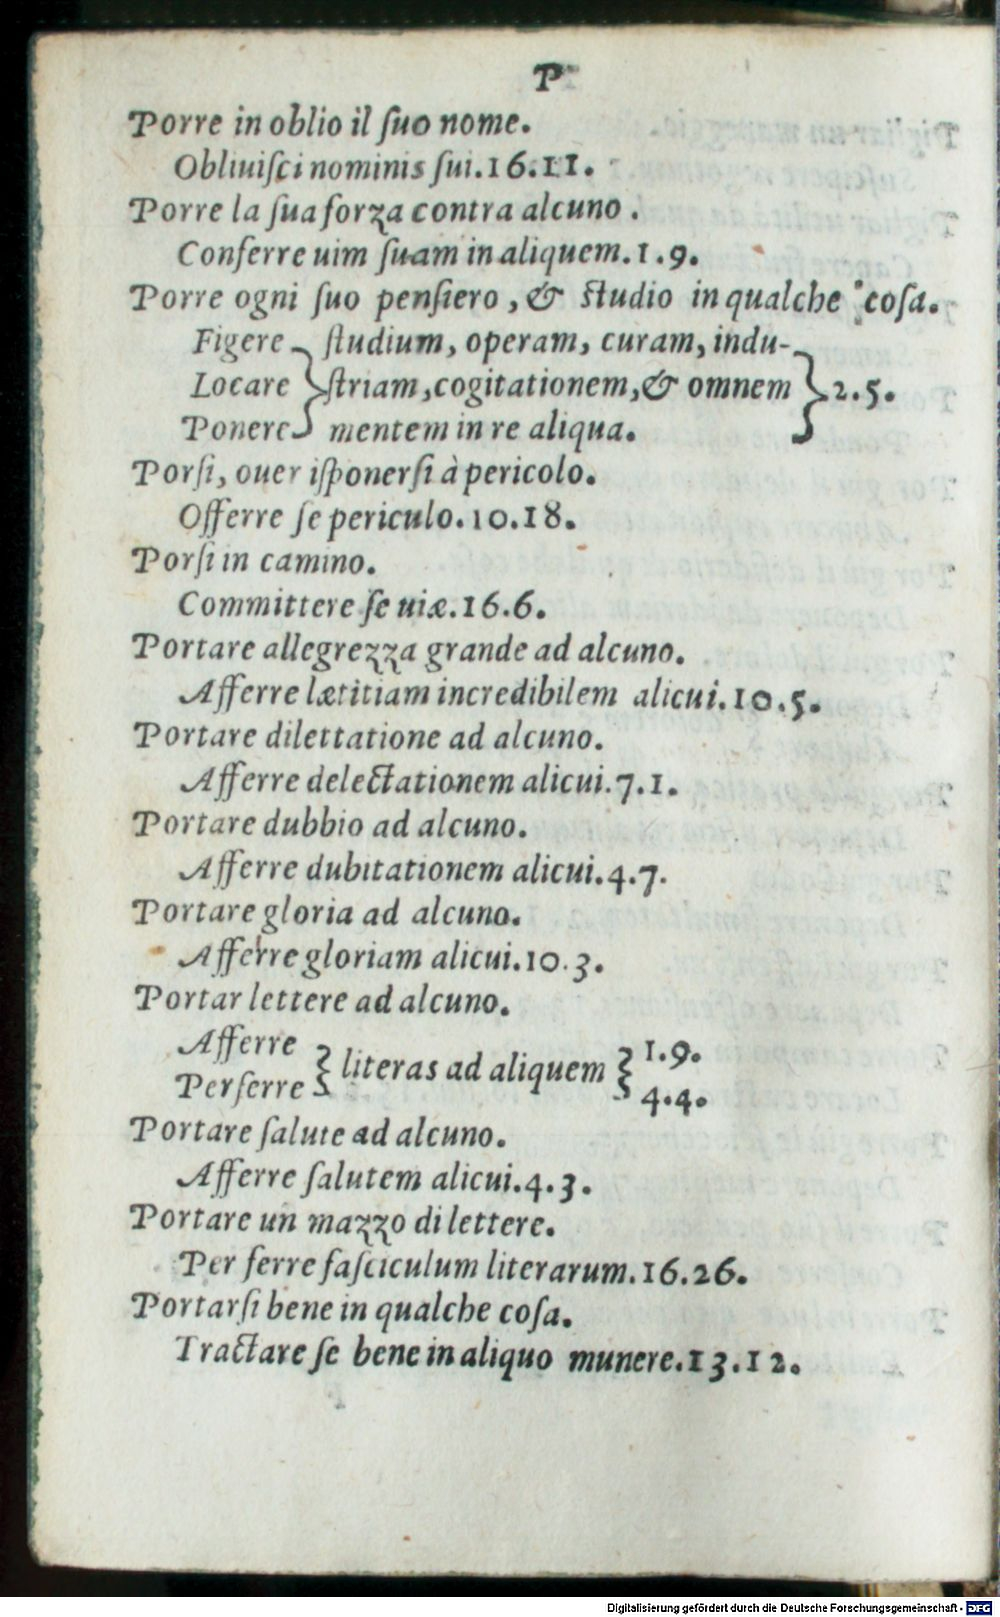 P
Porre in oblio il ſuo nome.
Obliuiſci nominis ſui.16.11.
Porre la ſua forza contra alcuno.
Conferre uim ſuam in aliquem.1.9.
Porre ogni ſuo penſiero, & ſtudio in qualche coſa.
Figere ſtudium, operam, curam, indu-
Locare ſtriam, cogitationem, & omnem 2.5.
Ponere mentem in re aliqua.
Porſi, ouer iſponerſi à pericolo.
Offerre ſe periculo.10.18.
Porſi in camino.
Committere ſe uiæ.16.6.
Portare allegrezza grande ad alcuno.
Afferre lætitiam incredibilem alicui.10.5.
Portare dilettatione ad alcuno.
Afferre delectationem alicui.7.1.
Portare dubbio ad alcuno.
Afferre dubitationem alicui.4.7.
Portare gloria ad alcuno.
Afferre gloriam alicui.10.3.
Portar lettere ad alcuno.
Afferre
Perferre } literas ad aliquem { 1.9.
4.4.
Portare ſalute ad alcuno.
Afferre ſalutem alicui.4.3.
Portare un mazzo di lettere.
Per ferre faſciculum literarum.16.26.
Portarſi bene in qualche coſa.
Tractare ſe bene in aliquo munere.13.12.
Digitalisierung gefördert durch die Deutsche Forschungsgemeinschaft - DFG